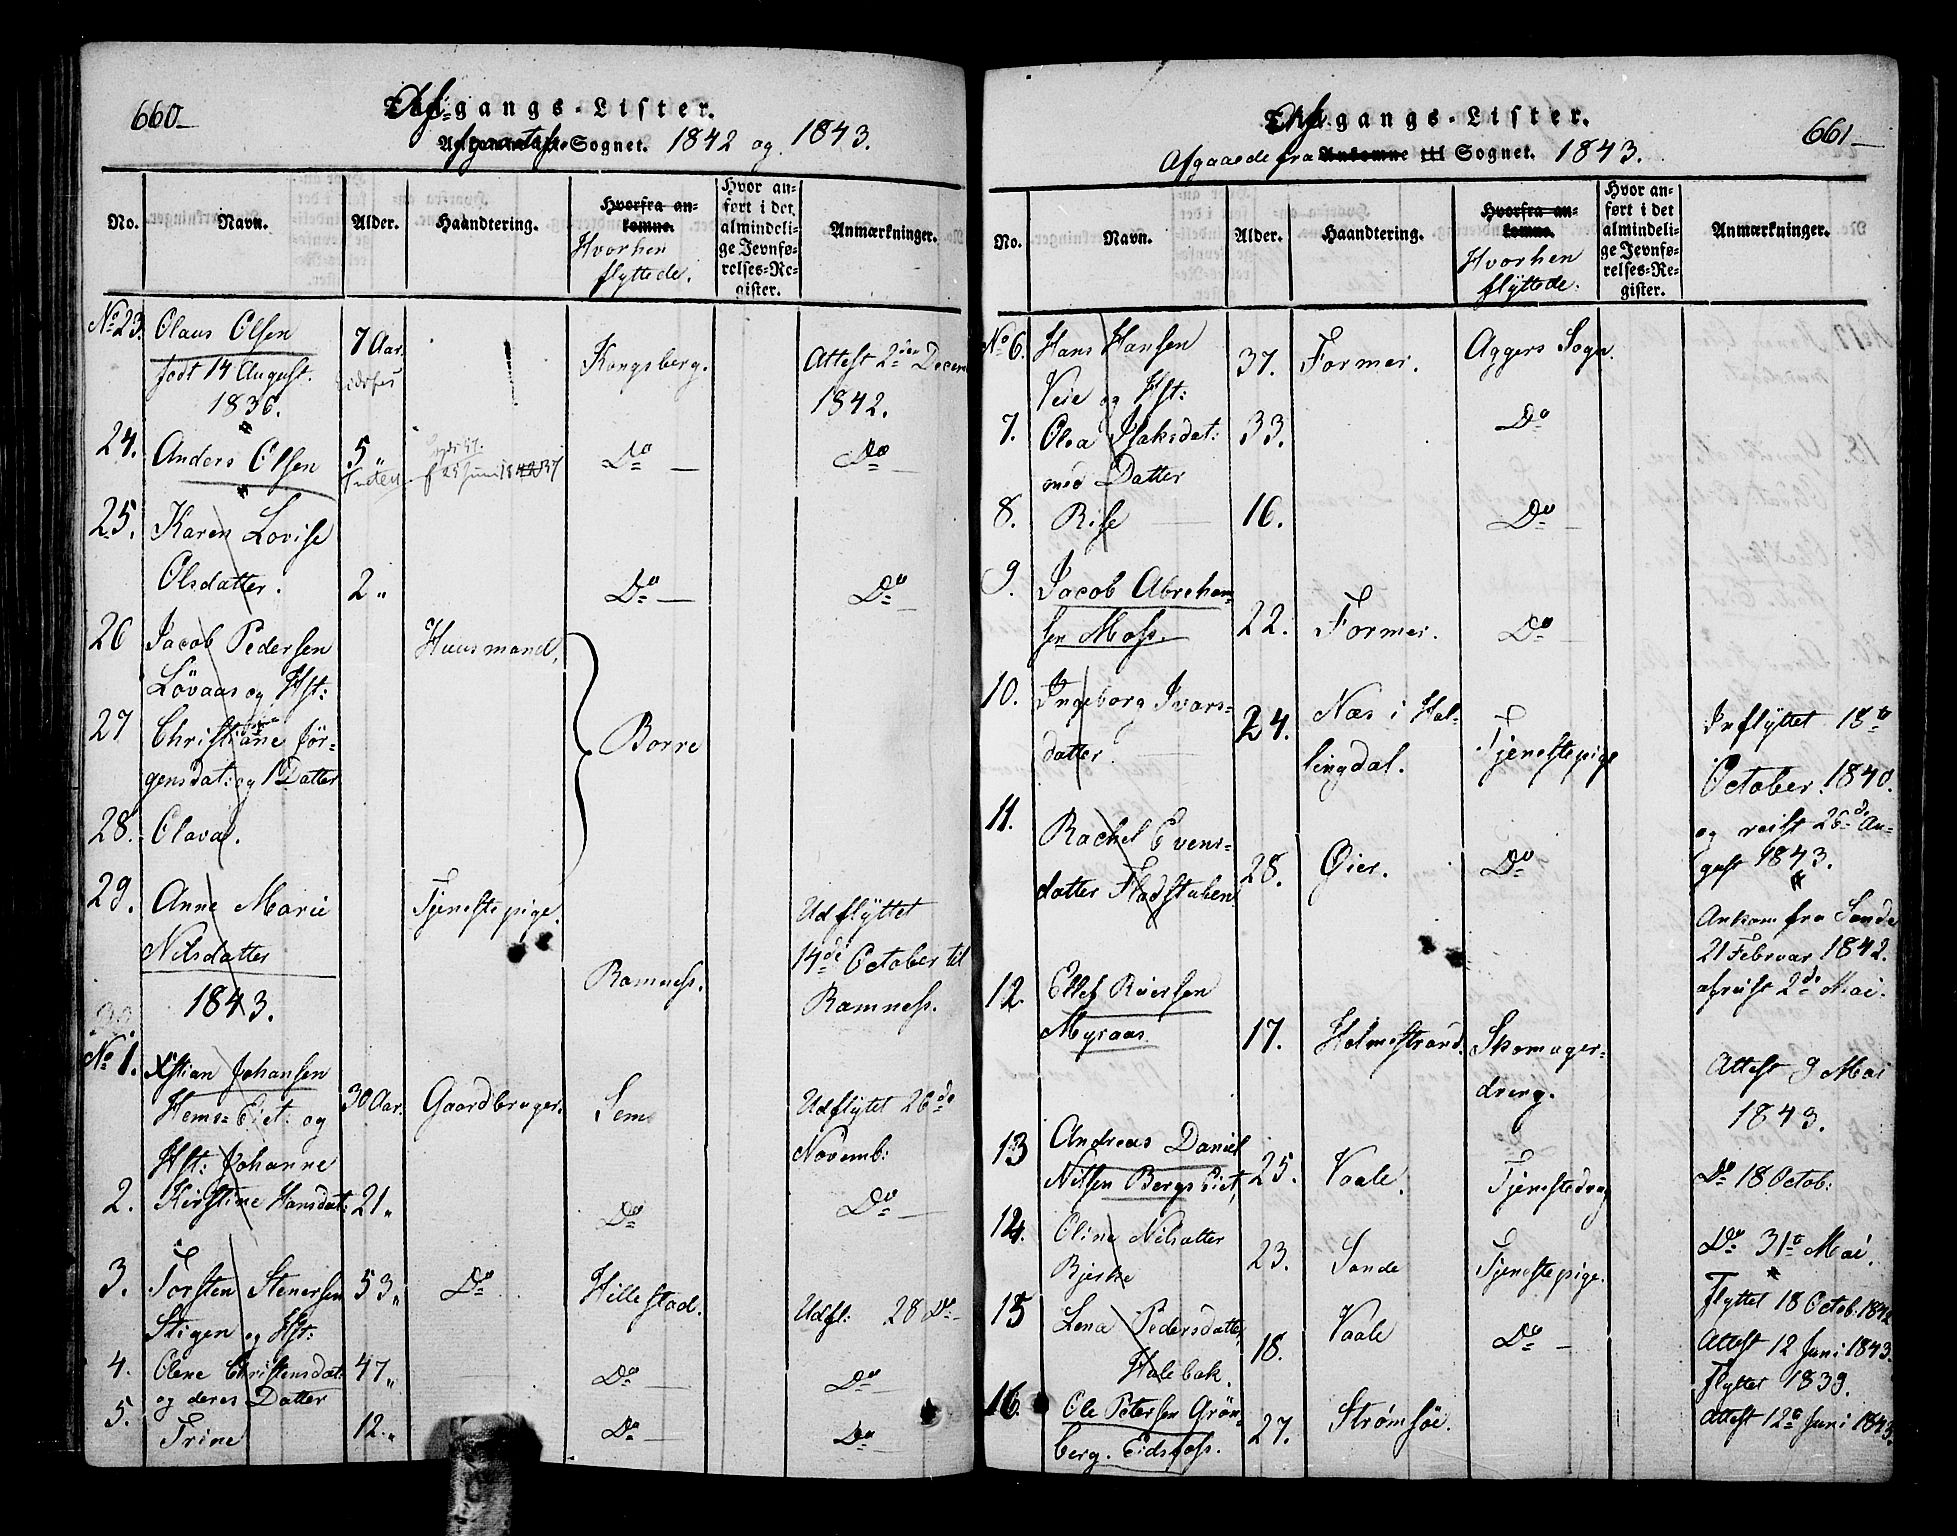 660
Afgangs-Lister.
Afgaaede fra Sognet. 1842 og 1843.
No. Navn. Alder. Haandtering. Hvorfra ankomne. Hvorhen flyttede. Hvor anført i det almindelige Jevnførelses-Register. Anmærkninger.
No 23. Olaus Olsen 7 Aar. Kongsberg. Attest 2den Decem
født 14 August. Eidsfos 1842.
1836.
24. Anders Olsen 5 " Do Do
25. Karen Lovise
Olsdatter. 2 " Do Do
26 Jacob Pedersen Huusmand.
Løvaas og Hst:
27 Christiane Jör- Borre
gensdat: og 1 Datter
28. Olava.
29. Anne Marie Tjenestepige. Udflÿttet
Nilsdatter Ramness. 14de October til
1843. Ramness.
No 1. Xstian Johansen
Hems-Eiet. og 30 Aar. Gaardbruger. Sem Udflÿtet 26de
Hst: Johanne Novemb:
2. Kirstine Hansdat: 21 " Do Do
3. Torsten Stenersen 53 " Do Hillestad. Udfl: 28 Do
Stigen og Hst:
4. Olene Christensdat: 47 " Do Do
og deres Datter
5. Trine 12 " Do Do
661
Afgangs-Lister.
Afgaaede fra Ankomne til Sognet. 1843.
No. Navn. Alder. Haandtering. Hvorfra ankomne. Hvorhen flÿttede. Hvor anført i det almindelige Jevnførelses-Register. Anmærkninger.
No 6. Hans Hansen 37. Former. Aggers Sogn.
Veie og Hst:
7. Olea Isaksdat: 33. Do
med Datter
8. Rise 16. Do
9. Jacob Abreham-
sen Moss. 22. Former. Do
10. Ingeborg Ivars- 24. Næs i Hal- Tjenestepige Inflÿttet 15de
datter lingdal. October 1840.
og reist 26de Au-
gust 1843.
11. Rachel Evens-
datter Fladstuben 28. Øier. Do Ankom fra Sande
21 Februar 1842.
afreist 2de Mai.
12. Ellef Riersen
Myraas. 17. Holmestrand. Skomager- Attest 9 Mai
dreng. 1843.
13 Andreas Daniel
Nilsen Bergs Eiet, 25. Vaale. Tjenestedrag Do 18 Octob:
14. Oline Nilsatter 23. Sande Tjenestepige. Do 31te Mai.
Bjerke
15 Lena Pedersdatter, 18. Vaale Do Flyttet 18 Octob. 1842
Holebak. Attest 12 Juni 1843.
Flyttet 1839.
16. Ole Petersen Grön- 27. Strømsöe. Attest 12te Juni 1843.
berg. Eidsfoss.